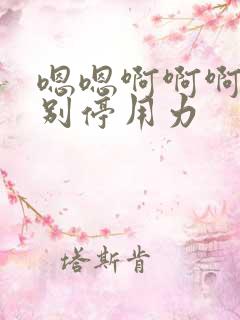 嗯嗯啊啊啊
别停用力
塔斯肯